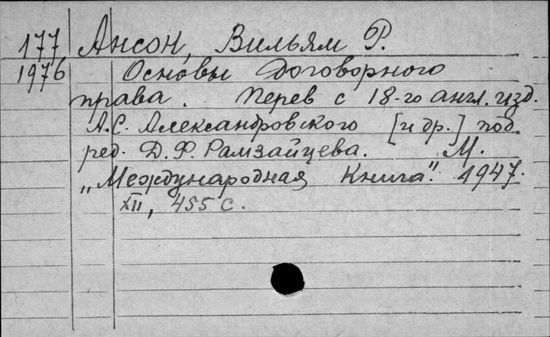 177 Ансон, Вильям Р.
1976 Основы Договорного
права. Перев с 18-го англ. изд.
А.С. Александровского [и др.] под.
ред. Д.Ф. Рамзайцева. М.
„Международная Книга". 1947.
XII, 455 с.